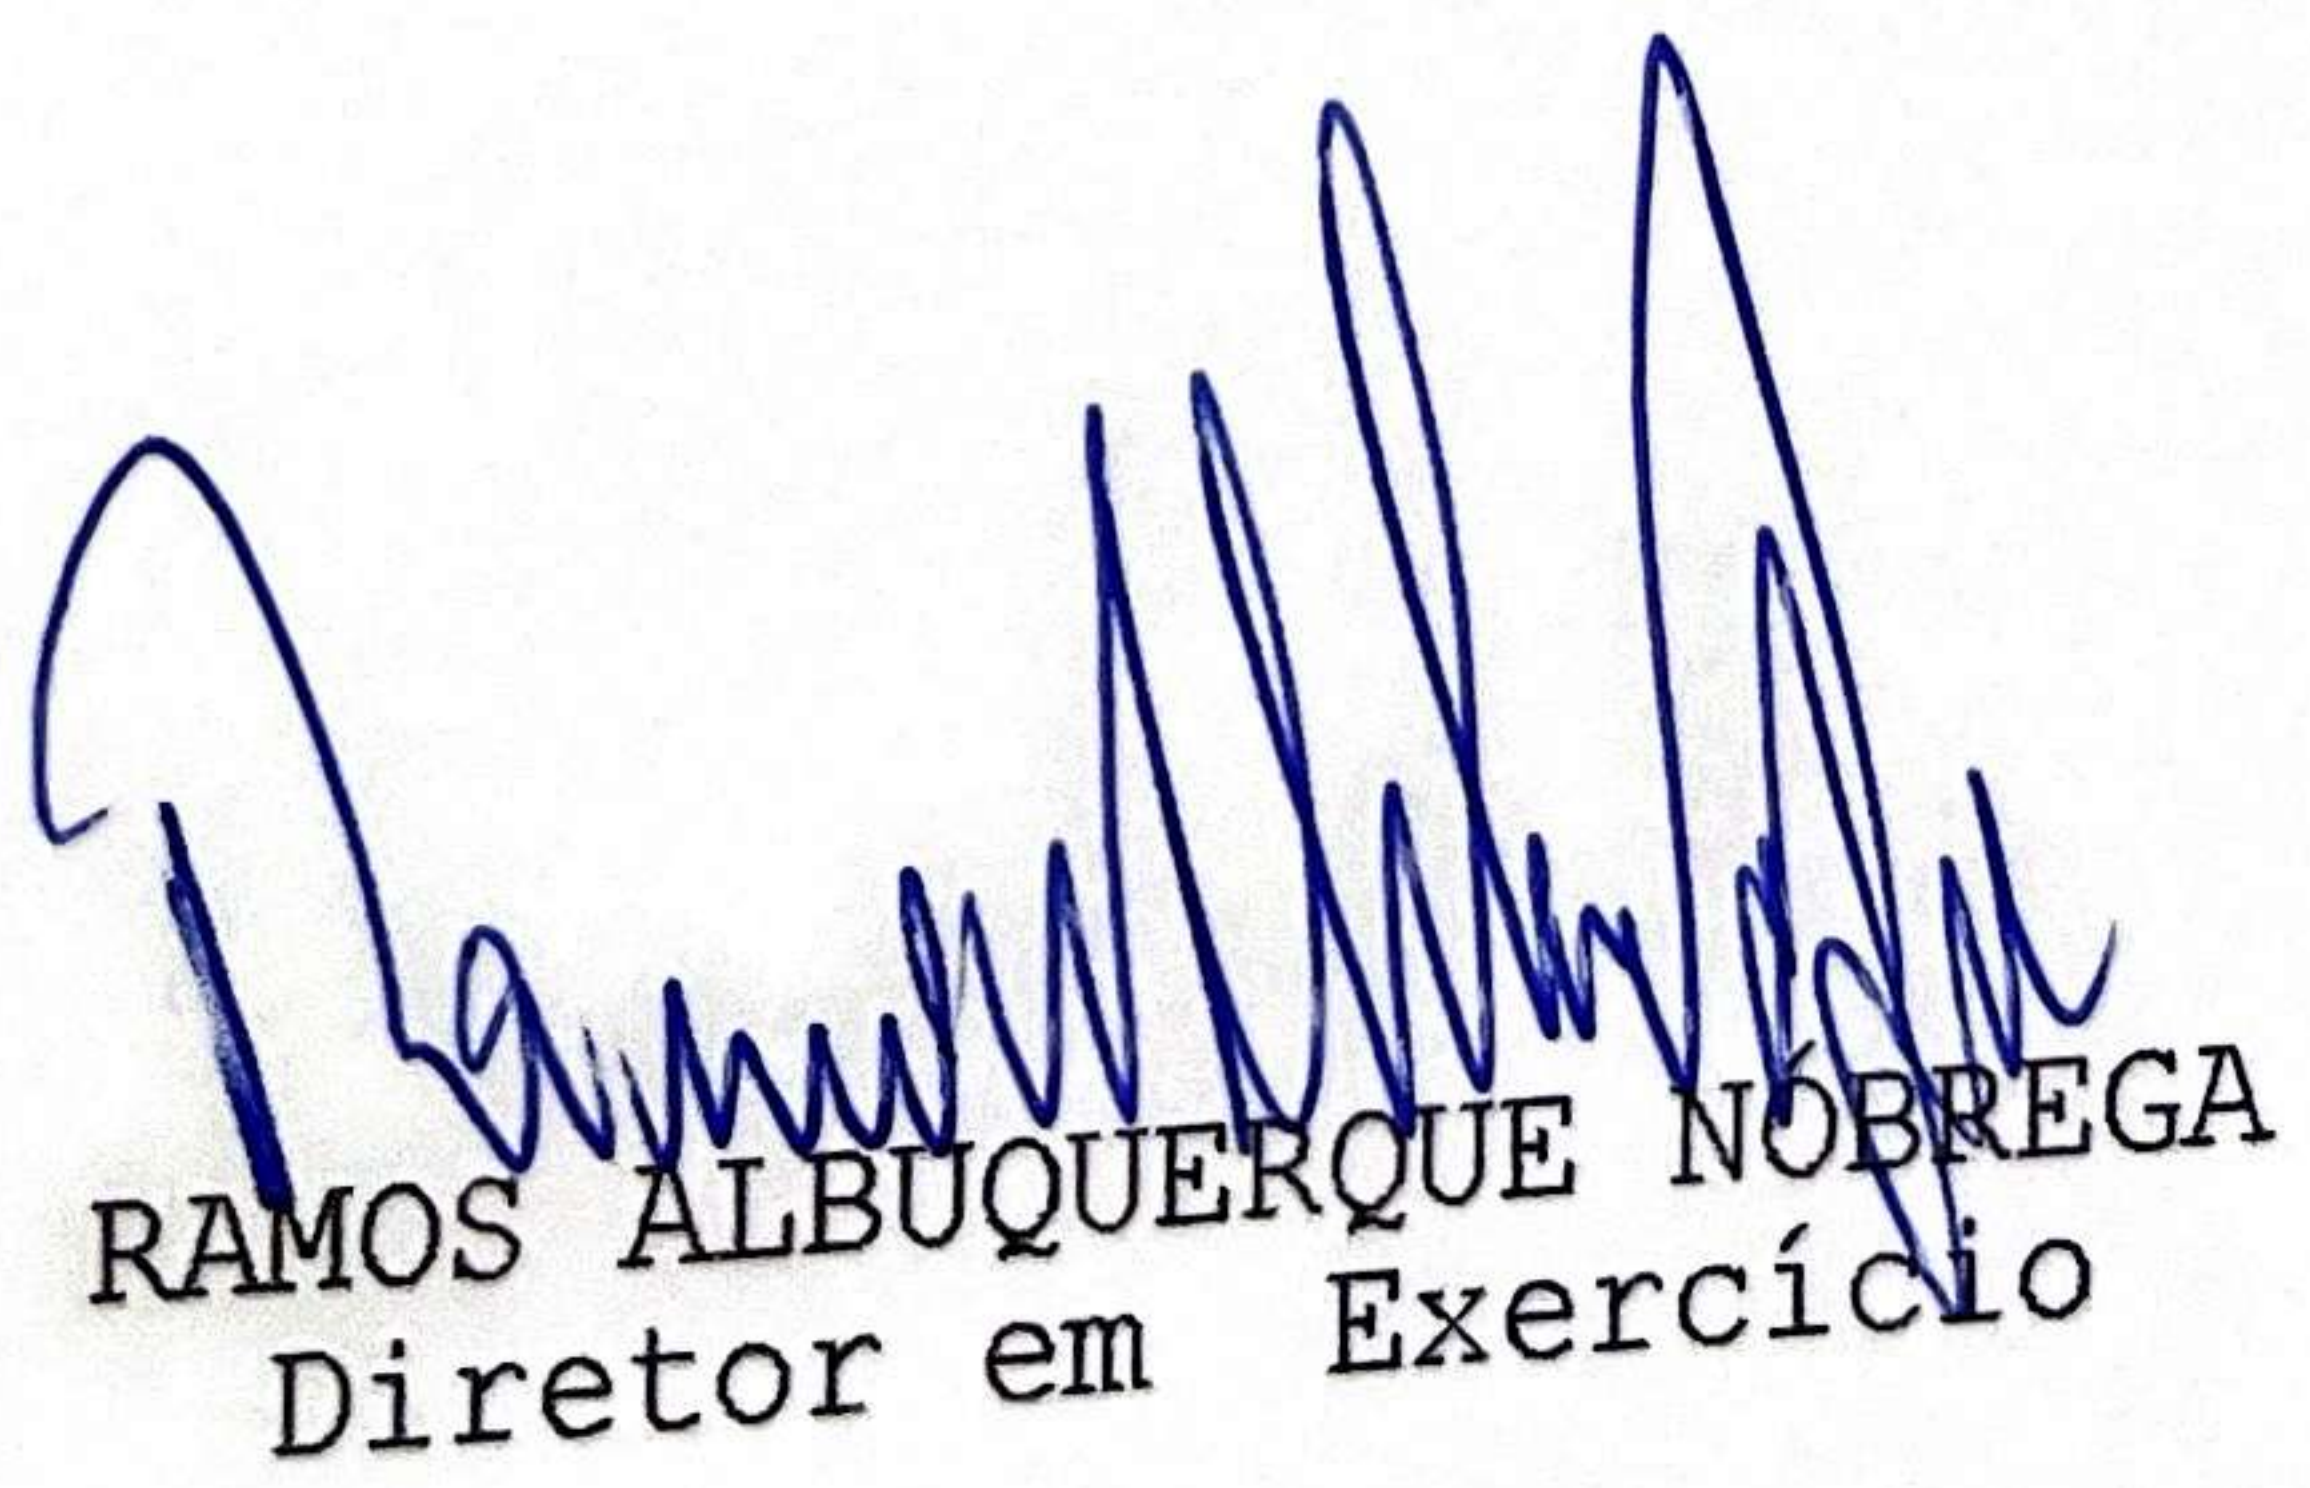 RAMOS ALBUQUERQUE NÓBREGA
Diretor em Exercício